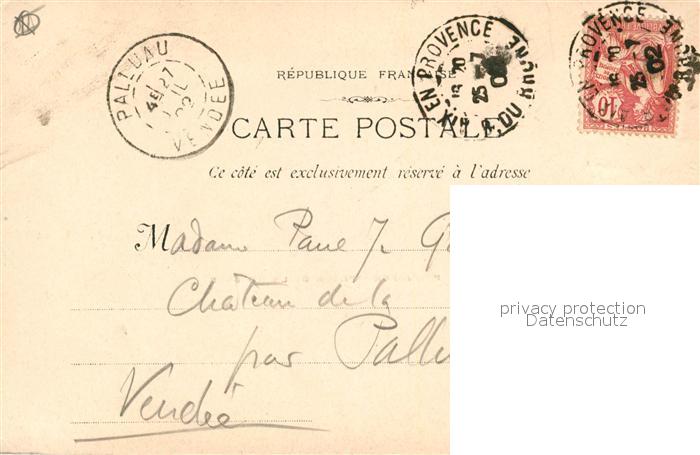 PALLUAU
27
JUIL
02
VENDÉE
AIX EN PROVENCE
25 -7
02
B. DU RHONE
EN PROVENCE
25 -7
02
RHONE
10
RÉPUBLIQUE FRANÇAISE
CARTE POSTALE
Ce côté est exclusivement réservé à l'adresse
Madame Paul J.
Château de la
par Pallu
Vendée
privacy protection
Datenschutz